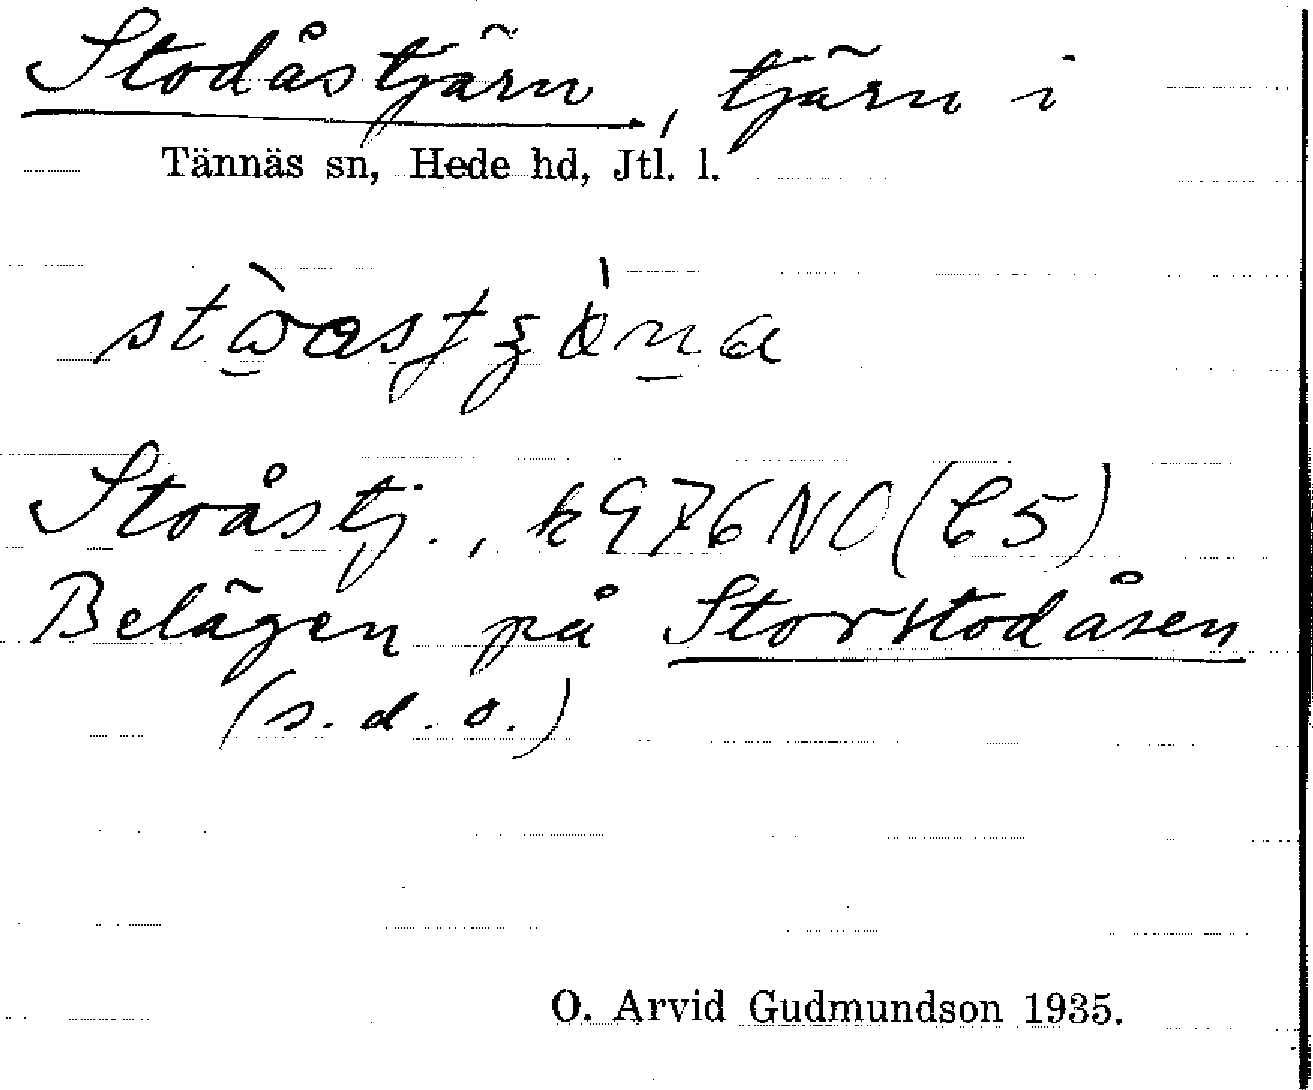 Stodåstjärn, tjärn i
Tännäs sn, Hede hd, Jtl. l.
Stoåstj., k976NO(C5)
Belägen på Storstodåsen
(s.d.o.)
O. Arvid Gudmundson 1935.